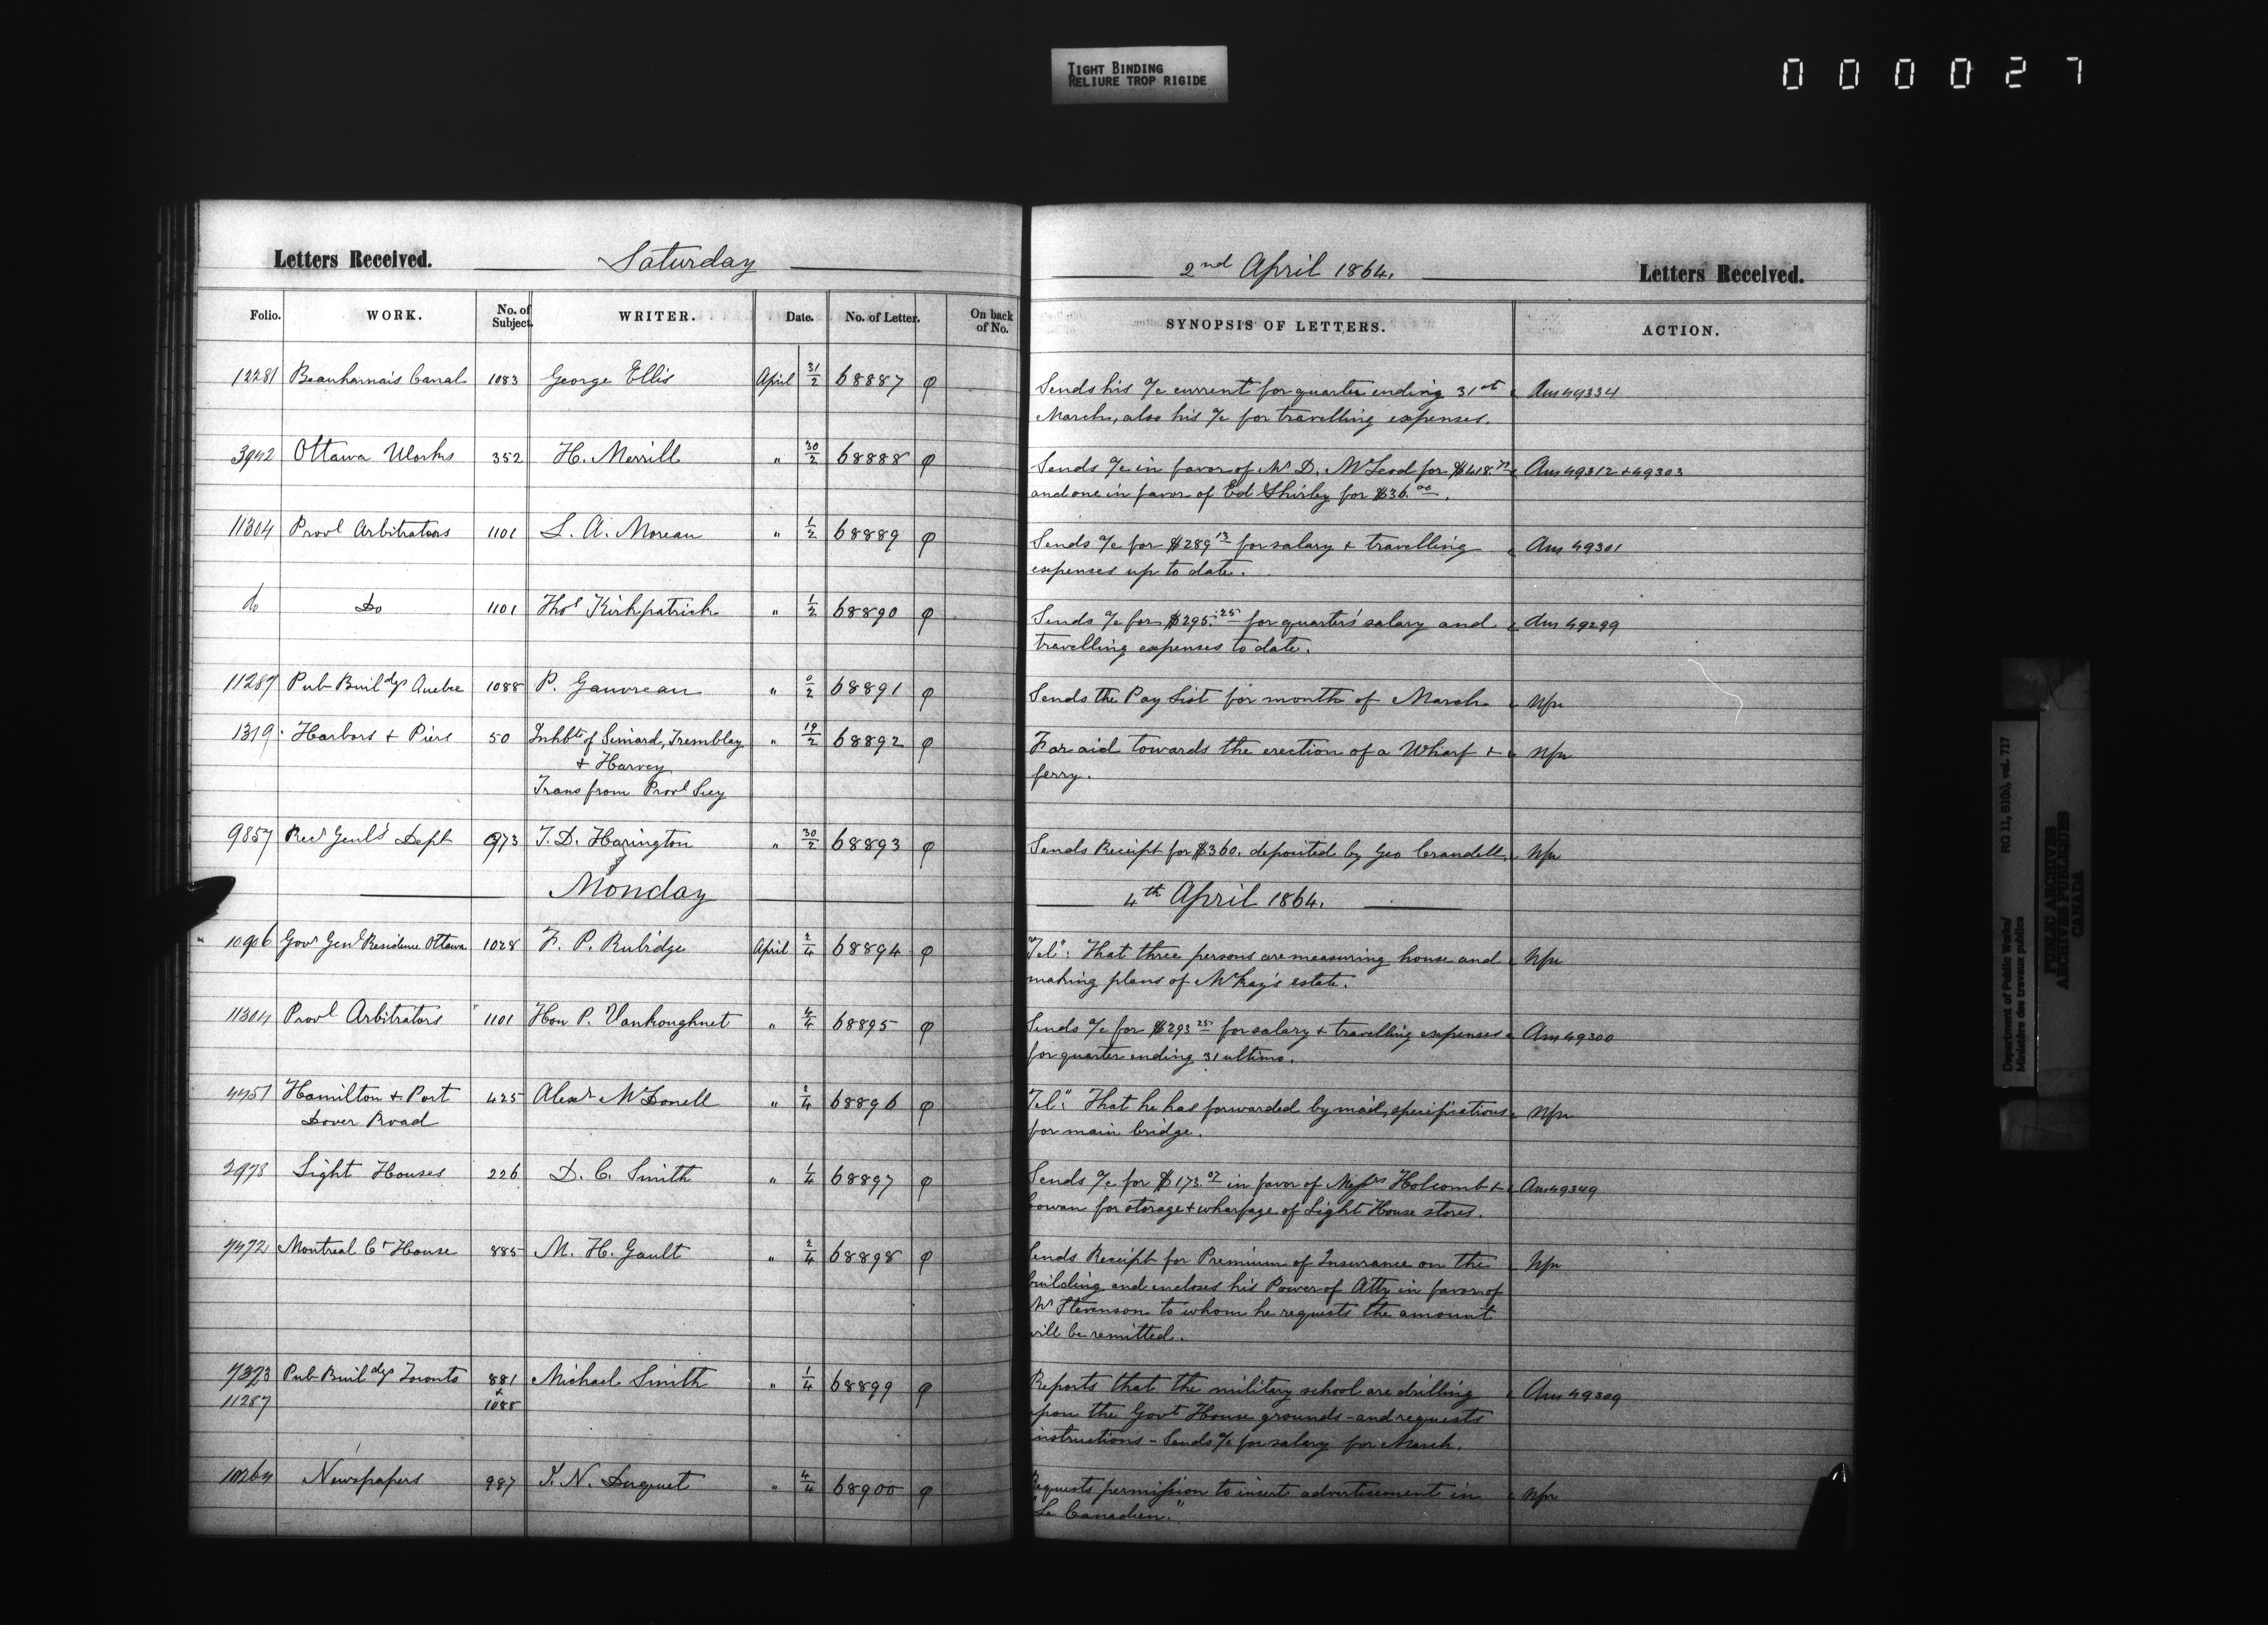 TIGHT BINDING
RELIURE TROP RIGIDE
000027
Letters Received. Saturday
Folio. WORK. No. of Subject. WRITER. Date. No. of Letter. On back of No.
12281 Beauharnais Canal 1083 George Ellis April 31/2 68887 φ
3942 Ottawa Works 352 H. Merrill " 30/2 68888 φ
11304 Provl Arbitrators 1101 L. A. Moreau " 1/2 68889 φ
do Do 1101 Thos Kirkpatrick " 1/2 68890 φ
11287 Pub Buildgs Quebec 1088 P. Gauvreau " 0/2 68891 φ
1319 Harbors & Piers 50 Inhbts of Simard, Tremblay " 19/2 68892 φ
& Harvey
Trans from Provl Secy
9857 Recr Genl's Dept 973 T. D. Harington " 30/2 68893 φ
Monday
10906 Govr Genl Residence Ottawa 1028 F. P. Rubidge April 2/4 68894 φ
11304 Provl Arbitrators 1101 Hon P. Vankoughnet " 4/4 68895 φ
4451 Hamilton & Port 425 Alexr McDonell " 2/4 68896 φ
Dover Road
2978 Light Houses 226 D. C. Smith " 1/4 68897 φ
7472 Montreal Ct House 885 M. H. Gault " 2/4 68898 φ
7373 Pub Buildgs Toronto 881 Michael Smith " 1/4 68899 φ
11287 & 1088
10264 Newspapers 987 J. N. Duquet " 4/4 68900 φ
2nd April 1864. Letters Received.
SYNOPSIS OF LETTERS. ACTION.
Sends his a/c current for quarter ending 31st Ans 49334
March, also his a/c for travelling expenses.
Sends a/c in favor of Mr D. McLeod for $418.72 Ans 49312 & 49303
and one in favor of Ed Shirley for $36.00.
Sends a/c for $289 13 for salary & travelling Ans 49301
expenses up to date.
Sends a/c for $295.25 for quarter's salary and Ans 49299
travelling expenses to date.
Sends the Pay List for month of March Nfn
For aid towards the erection of a Wharf & Nfn
ferry.
Sends Receipt for $360. deposited by Geo Crandell. Nfn
4th April 1864.
"Tel": That three persons are measuring house and Nfn
making plans of McKay's estate.
Sends a/c for $293 25 for salary & travelling expenses Ans 49300
for quarter ending 31 ultimo.
"Tel": That he has forwarded by mail, specifications Nfn
for main bridge.
Sends a/c for $173.07 in favor of Messrs Holcomb & Ans 49349
Cowan for storage & wharfage of Light House stores.
Sends Receipt for Premium of Insurance on the Nfn
building and encloses his Power of Atty in favor of
Mr Stevenson to whom he requests the amount
will be remitted.
Reports that the military school are drilling Ans 49309
upon the Govt House grounds - and requests
instructions - Sends a/c for salary for March.
Requests permission to insert advertisement in Nfn
"Le Canadien."
Department of Public Works/ RG 11, B1(b), vol. 717
Ministère des travaux publics
PUBLIC ARCHIVES
ARCHIVES PUBLIQUES
CANADA